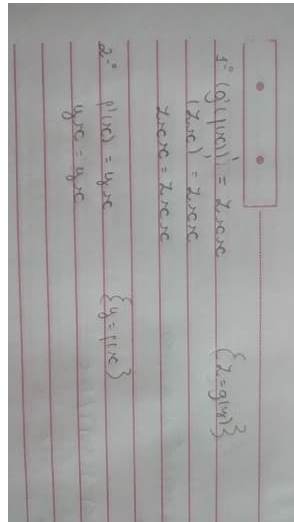 1° (g'(f(x)))' = Zxx {Z=g(y)}
(Zx)' = Zxx
Zxx = Zxx
2° f'(x) = yx {y=f(x)}
yx = yx